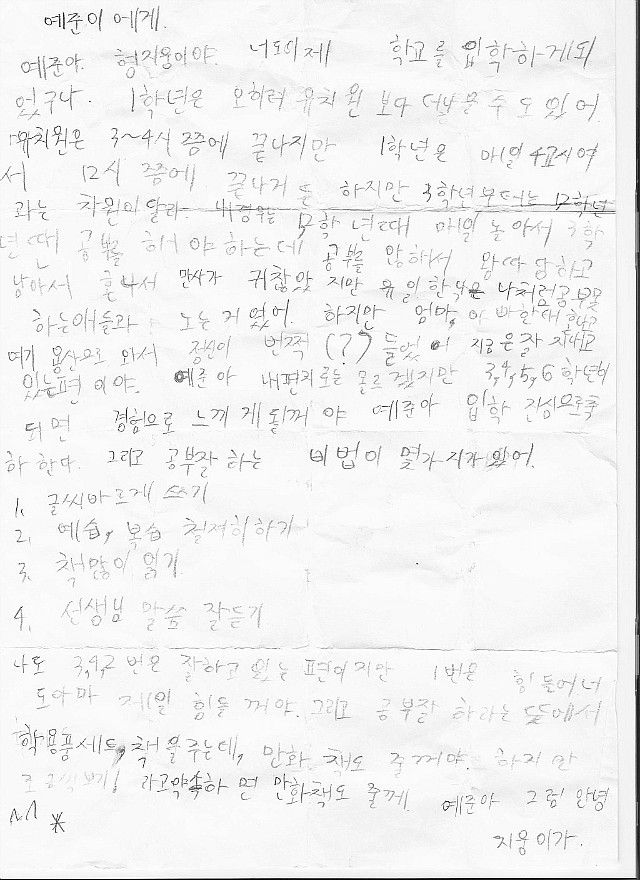 예준이에게.
예준아. 형 지웅이야. 너도 이제 학교를 입학하게 되
었구나. 1학년은 오히려 유치원 보다 더 나을 수도 있어
유치원은 3~4시 쯤에 끝나지만 1학년은 매일 4교시여
서 12시 쯤에 끝나거든 하지만 3학년부터는 1,2학년
과는 차원이 달라. 내경우는 1,2학년때 매일 놀아서 3학
년땐 공부를 해야하는데 공부를 않해서 왕따 당하고
남아서 혼나서 만사가 귀찮았지만 유일한 낙은 나처럼 공부못
하는애들과 노는거 였어. 하지만 엄마, 아빠한테 혼나고
여기 용산으로 와서 정신이 번쩍(?) 들었어 지금은 잘 지내고
있는편 이야. 예준아 내편지로는 모르겠지만 3,4,5,6학년이
되면 경험으로 느끼게 될꺼야 예준아 입학 진심으로 축
하 한다. 그리고 공부잘 하는 비법이 몇가지가 있어.
1. 글씨 바르게 쓰기
2. 예습, 복습 철저히 하기
3. 책많이 읽기
4. 선생님 말씀 잘듣기
나도 3,4,2번은 잘하고 있는 편이지만 1번은 힘들어 너
도 아마 제일 힘들꺼야. 그리고 공부잘 하라는 뜻에서
학용품세트, 책을 주는데, 만화 책도 줄꺼야. 하지만
보기! 라고 약속하면 만화책도 줄께. 예준아 그럼 안녕
지웅이가.